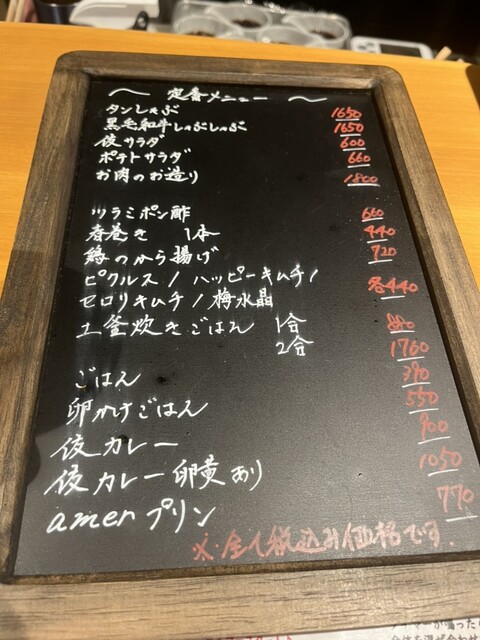 〜 定番メニュー 〜
タンしゃぶ 1650
黒毛和牛しゃぶしゃぶ 1650
俊サラダ 600
ポテトサラダ 660
お肉のお造り 1800
ツラミポン酢 660
春巻き 1本 440
鶏のから揚げ 720
ピクルス / ハッピーキムチ /
セロリキムチ / 梅水晶 各440
土釜炊きごはん 1合 880
2合 1760
ごはん 390
卵かけごはん 550
俊カレー 900
俊カレー 卵黄あり 1050
amerプリン 770
※全て税込み価格です。